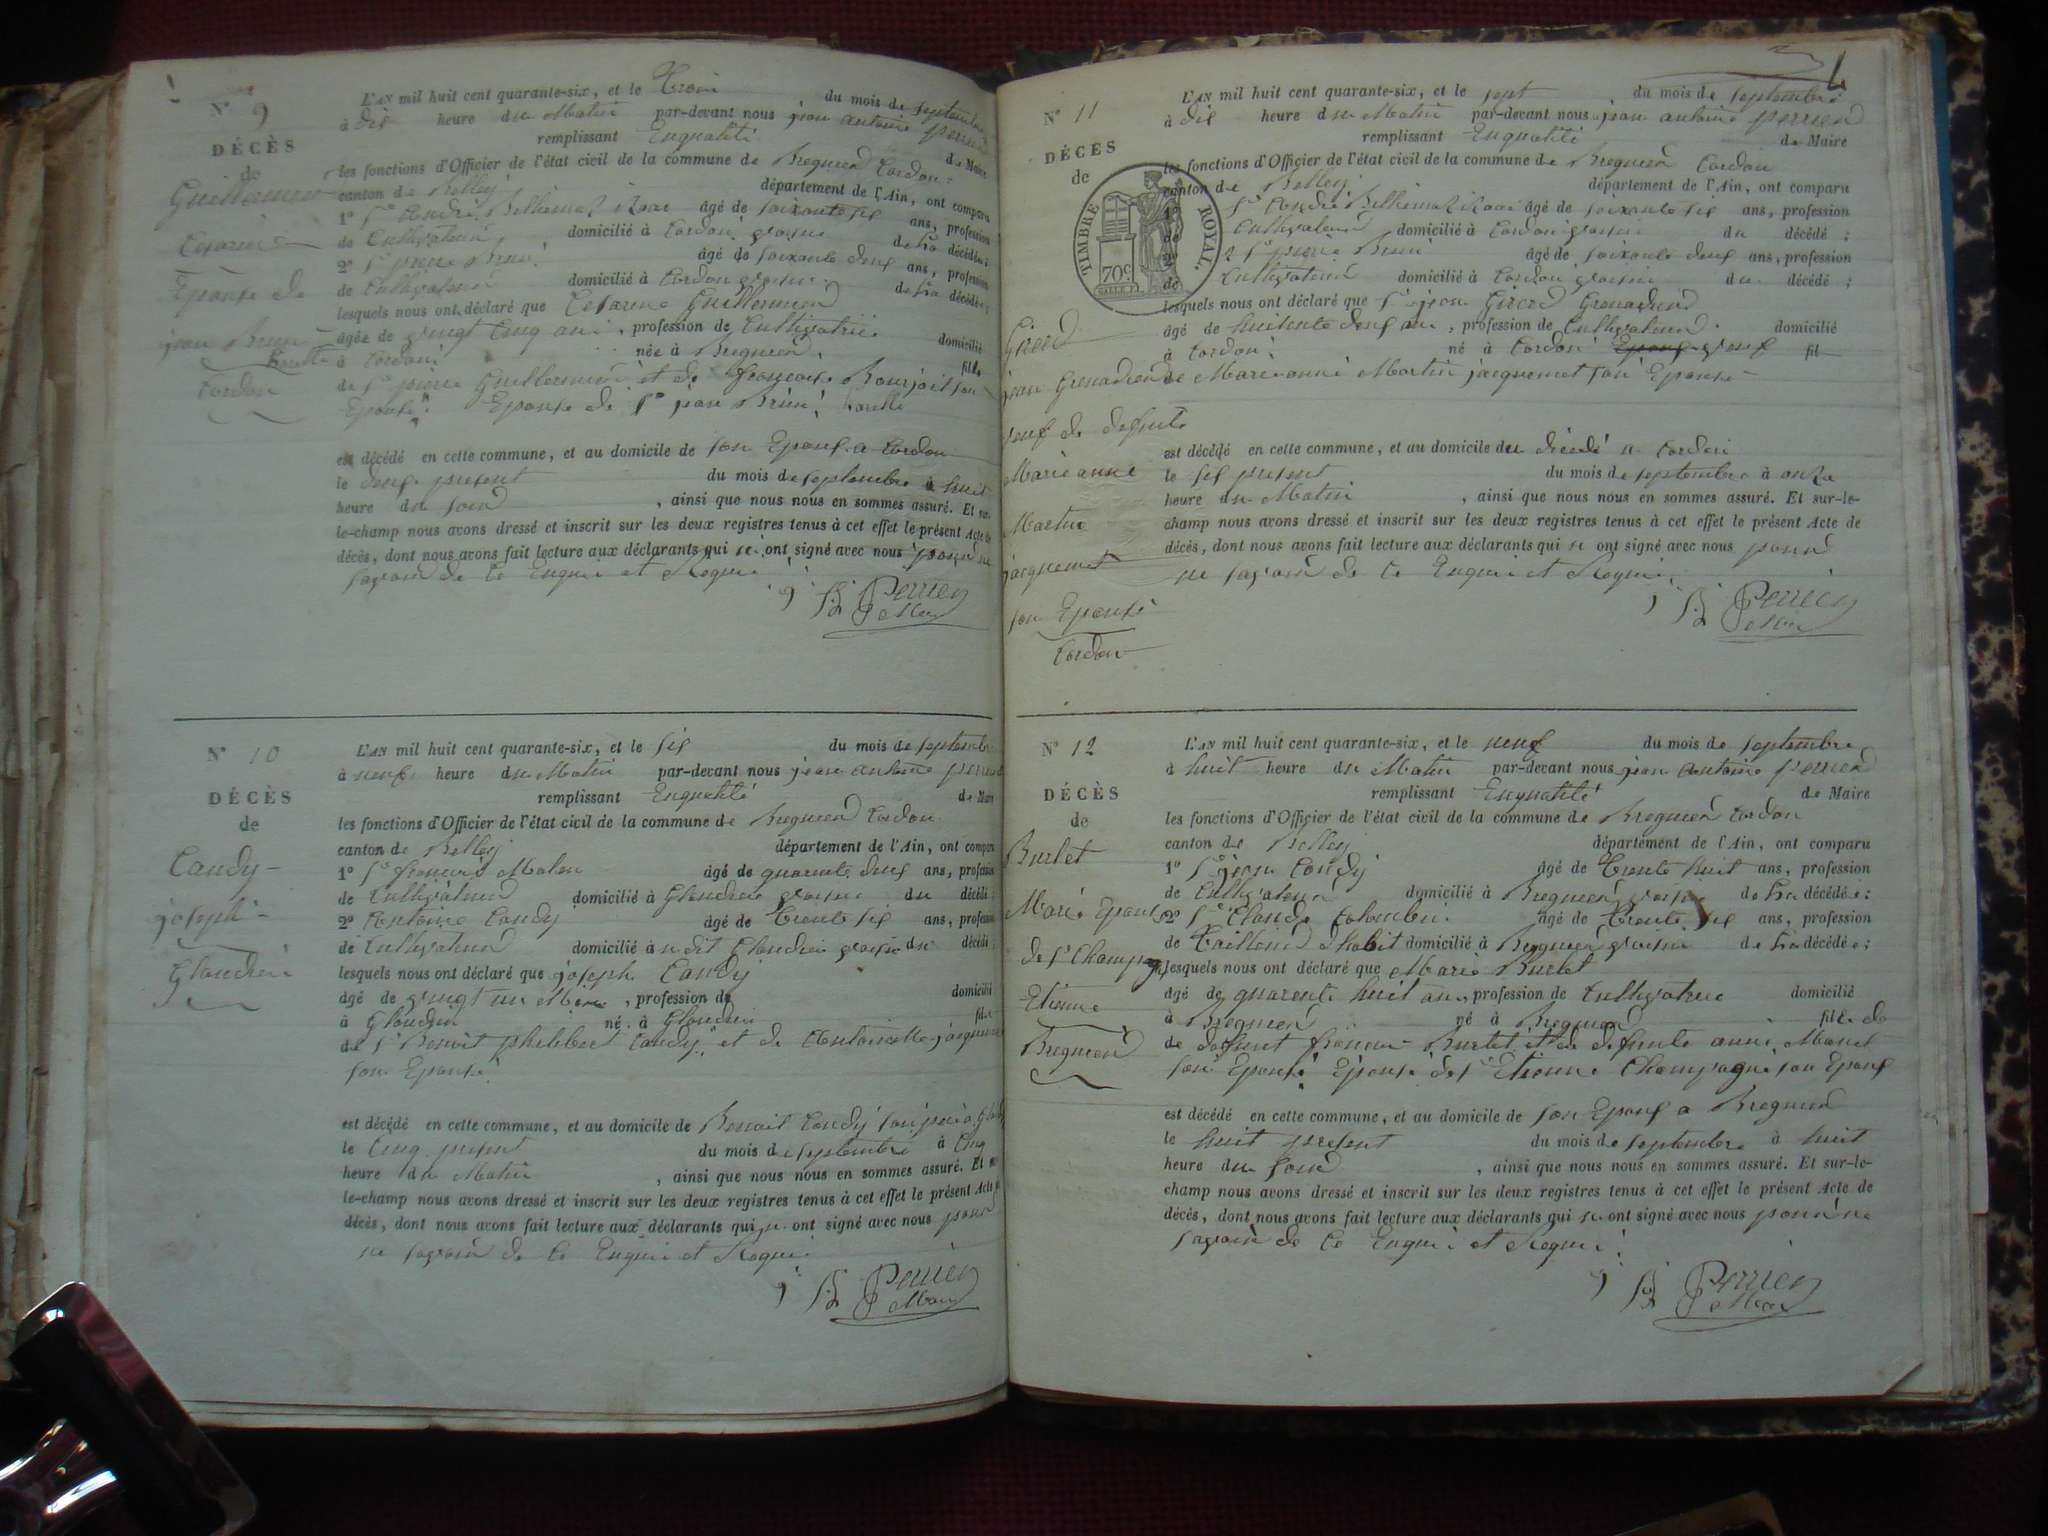 N° 9
DÉCÈS
de
Guillermin
Cesarine
Epouse de
jean Brun
Cordon
L'AN mil huit cent quarante-six, et le trois du mois de septembre
à dix heure du Matin par-devant nous jean antoine perrier
remplissant Enqualité de Maire
les fonctions d'Officier de l'état civil de la commune de Bregnier Cordon
canton de Belley département de l'Ain, ont comparu
1° Sr andré âgé de soixante six ans, profession
de Cultivateur domicilié à Cordon voisin de la décédée;
2° Sr pierre Brun âgé de soixante deux ans, profession
de Cultivateur domicilié à Cordon voisin de la décédée
lesquels nous ont déclaré que Cesarine Guillermin
âgée de vingt Cinq ans, profession de Cultivatrice domicilié
à Cordon née à Bregnier fille
de Sr pierre Guillermin et de françoise son
Epouse. Epouse de Sr jean Brun
est décédé en cette commune, et au domicile de son Epoux a Cordon
le deux present du mois de septembre à huit
heure du soir, ainsi que nous nous en sommes assuré. Et sur-
le-champ nous avons dressé et inscrit sur les deux registres tenus à cet effet le présent Acte de
décès, dont nous avons fait lecture aux déclarants qui ont signé avec nous pour ne
savoir de ce Enquis et Requis
Perrier
Maire
N° 10
DÉCÈS
de
Candy
joseph
Glandieu
L'AN mil huit cent quarante-six, et le six du mois de septembre
à neuf heure du Matin par-devant nous jean antoine perrier
remplissant Enqualité de Maire
les fonctions d'Officier de l'état civil de la commune de Bregnier Cordon
canton de Belley département de l'Ain, ont comparu
1° Sr françois âgé de quarante deux ans, profession
de Cultivateur domicilié à Glandieu voisin du décédé
2° Antoine Candy âgé de trente six ans, profession
de Cultivateur domicilié à udit Glandieu voisin du décédé;
lesquels nous ont déclaré que joseph Candy
âgé de vingt un Mois, profession de domicilié
à Glandieu né à Glandieu fils
de Sr Benoit philibert Candy et de Antoinette
son Epouse
est décédé en cette commune, et au domicile de Benoit Candy son père a
le Cinq present du mois de septembre à Cinq
heure du Matin, ainsi que nous nous en sommes assuré. Et sur-
le-champ nous avons dressé et inscrit sur les deux registres tenus à cet effet le présent Acte de
décès, dont nous avons fait lecture aux déclarants qui ont signé avec nous pour
ne savoir de ce Enquis et Requis
Perrier
Maire
N° 11
DÉCÈS
de
TIMBRE ROYAL.
70c.
jean Grenadier
veuf de defunte
Marie anne
Martin
jacquemet
son Epouse
Cordon
L'AN mil huit cent quarante-six, et le sept du mois de septembre
à dix heure du Matin par-devant nous jean antoine perrier
remplissant Enqualité de Maire
les fonctions d'Officier de l'état civil de la commune de Bregnier Cordon
canton de Belley département de l'Ain, ont comparu
1° Sr andré âgé de soixante six ans, profession
de Cultivateur domicilié à Cordon voisin du décédé;
2° Sr pierre Brun âgé de soixante deux ans, profession
de Cultivateur domicilié à Cordon voisin du décédé;
lesquels nous ont déclaré que Sr jean Grenadier
âgé de huitente deux ans, profession de Cultivateur domicilié
à Cordon né à Cordon Epoux veuf fil
de Marie anne Martin jacquemet son Epouse
est décédé en cette commune, et au domicile du décédé a Cordon
le six present du mois de septembre à onze
heure du Matin, ainsi que nous nous en sommes assuré. Et sur-le-
champ nous avons dressé et inscrit sur les deux registres tenus à cet effet le présent Acte de
décès, dont nous avons fait lecture aux déclarants qui ont signé avec nous pour
ne savoir de ce Enquis et Requis
Perrier
Maire
N° 12
DÉCÈS
de
Burlet
Marie Epouse
de Sr Champagne
Etienne
Bregnier
L'AN mil huit cent quarante-six, et le neuf du mois de septembre
à huit heure du Matin par-devant nous jean antoine perrier
remplissant Enqualité de Maire
les fonctions d'Officier de l'état civil de la commune de Bregnier Cordon
canton de Belley département de l'Ain, ont comparu
1° Sr jean Candy âgé de trente huit ans, profession
de Cultivateur domicilié à Bregnier voisin de la décédée;
2° Sr Claude Colombin âgé de trente six ans, profession
de tailleur d'habit domicilié à Bregnier voisin de la décédée;
lesquels nous ont déclaré que Marie Burlet
âgé de quarente huit ans, profession de Cultivatrice domicilié
à Bregnier né à Bregnier fille de
de defunt françois Burlet et de defunte anne
son Epouse Epouse de Sr Etienne Champagne son Epoux
est décédé en cette commune, et au domicile de son Epoux a Bregnier
le huit present du mois de septembre à huit
heure du soir, ainsi que nous nous en sommes assuré. Et sur-le-
champ nous avons dressé et inscrit sur les deux registres tenus à cet effet le présent Acte de
décès, dont nous avons fait lecture aux déclarants qui ont signé avec nous pour ne
savoir de ce Enquis et Requis
Perrier
Maire